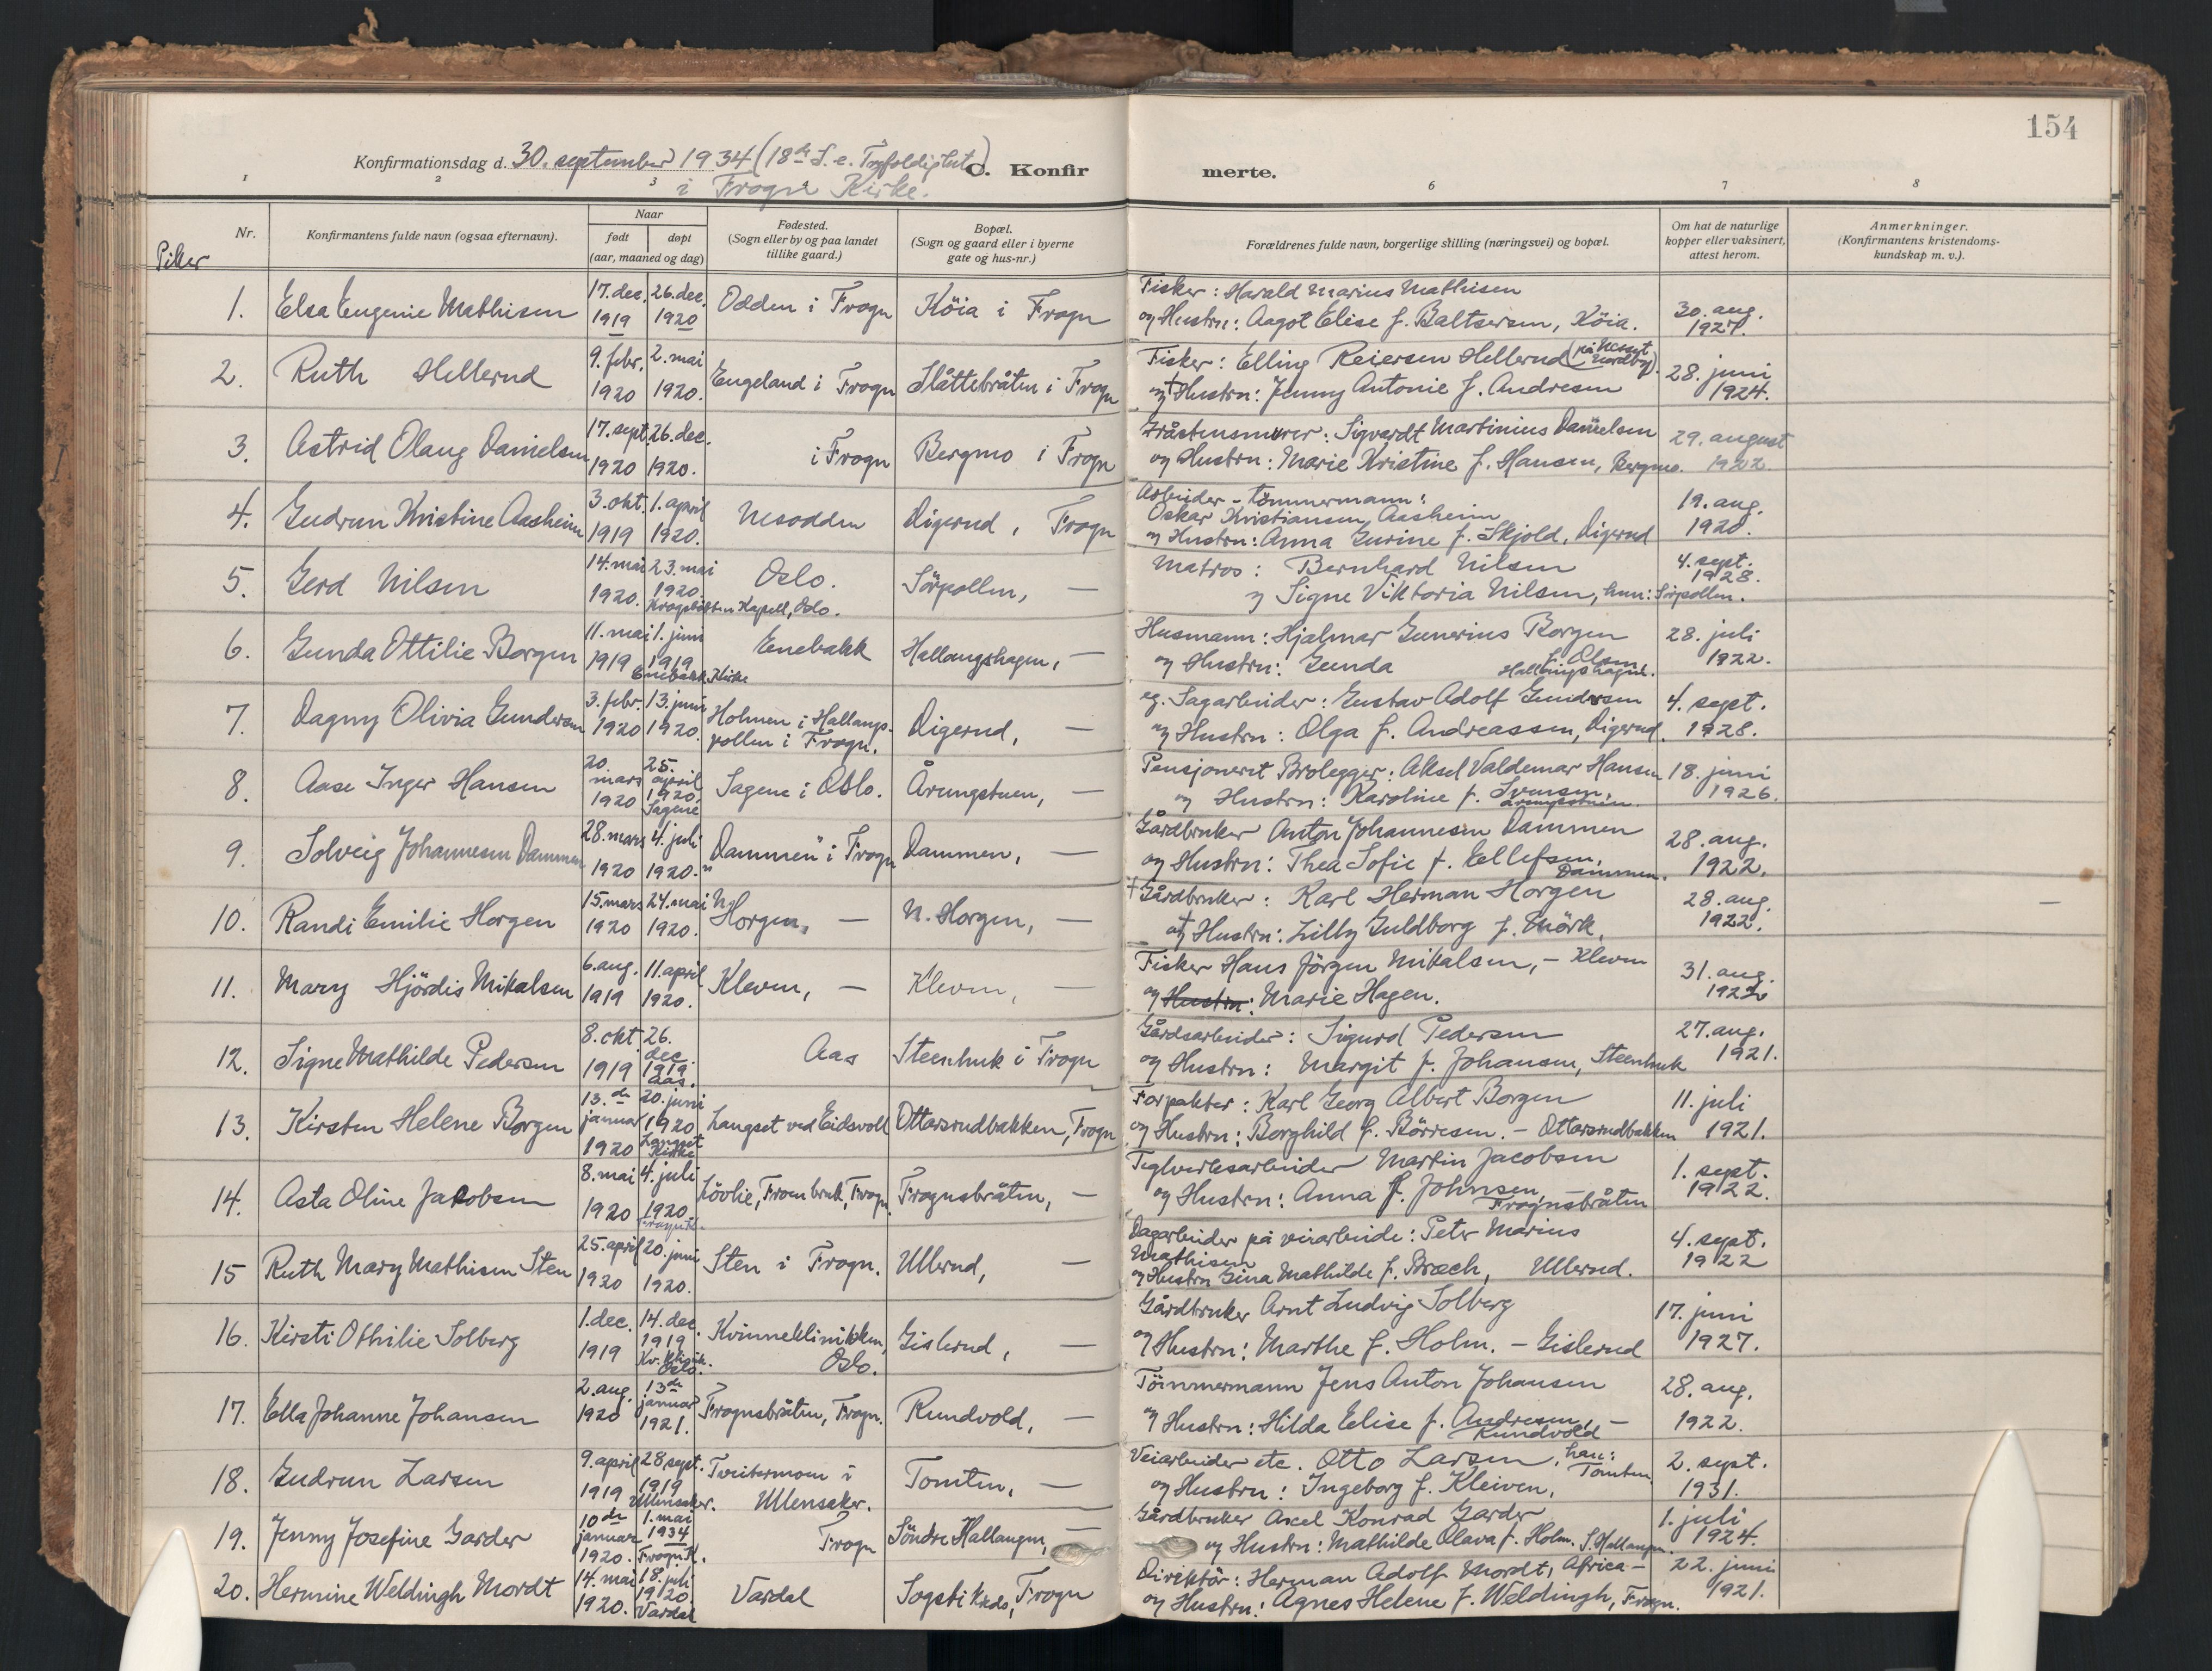 154
Konfirmationsdag d. 30. september 1934 (18de S. e. Trefoldighet)
i Frogn Kirke.
C. Konfirmerte.
1 2 3 6 7 8
Piker
Nr.
Konfirmantens fulde navn (ogsaa efternavn).
Naar
født
døpt
(aar, maaned og dag)
Fødested.
(Sogn eller by og paa landet
tillike gaard.)
Bopæl.
(Sogn og gaard eller i byerne
gate og hus-nr.)
Forældrenes fulde navn, borgerlige stilling (næringsvei) og bopæl.
Om hat de naturlige
kopper eller vaksinert,
attest herom.
Anmerkninger.
(Konfirmantens kristendoms-
kundskap m. v.).
1. Elsa Eugenie Mathisen 17. dec. 1919 26. dec. 1920 Odden i Frogn Köia i Frogn
Fisker: Harald Marius Mathisen
og Hustru: Aagot Elise f. Baltsersen, Köia.
30. aug. 1927.
2. Ruth Hellerud 9. febr. 1920 2. mai 1920. Engeland i Frogn Slåttebråten i Frogn
Fisker: Elling Reiersen Hellerud (på Nesset Nordby).
og † Hustru: Jenny Antonie f. Andresen
28. juni 1924.
3. Astrid Olaug Danielsen 17. sept. 1920 26. dec. 1920. i Frogn Bergmo i Frogn
Gråstensmurer: Sigvardt Martinius Danielsen
og Hustru: Marie Kristine f. Hansen, Bergmo.
29. august 1922.
4. Gudrun Kristine Aasheim 3. okt. 1919 1. april 1920. Nesodden Digerud, Frogn
Arbeider - tömmermann:
Oskar Kristiansen Aasheim
og Hustru: Anna Gurine f. Skjold, Digerud
19. aug. 1920.
5. Gerd Nilsen 14. mai 1920. 23. mai 1920. Krogstötten Kapell, Oslo. Oslo. Sörpollen, —
Matros: Bernhard Nilsen
og Signe Viktoria Nilsen, hun: Sörpollen.
4. sept. 1928.
6. Gunda Ottilie Borgen 11. mai 1919 1. juni 1919 Enebakk Kirke Enebakk Hallangshagen, —
Husmann: Hjalmar Gunerius Borgen
og Hustru: Gunda f. Olsen Hallangshagen.
28. juli 1922.
7. Dagny Olivia Gundersen 3. febr. 1920 13. juni 1920. Holmen i Hallangspollen i Frogn. Digerud, —
eg. Sagarbeider: Gustav Adolf Gundersen
og Hustru: Olga f. Andreassen, Digerud.
4. sept. 1928.
8. Aase Inger Hansen 20. mars 1920 25. april 1920. Sagene Sagene i Oslo. Årungstuen, —
Pensjoneret Brolegger: Aksel Valdemar Hansen
og Hustru: Karoline f. Svensen, Årungstuen.
18. juni 1926.
9. Solveig Johannesen Dammen 28. mars 1920 4. juli 1920. "Dammen" i Frogn Dammen, —
Gårdbruker Anton Johannesen Dammen
og Hustru: Thea Sofie f. Ellefsen, Dammen.
28. aug. 1922.
10. Randi Emilie Horgen 15. mars 1920 24. mai 1920. N. Horgen, — N. Horgen, —
† Gårdbruker: Karl Herman Horgen
og † Hustru: Lilly Guldborg f. Mörk.
28. aug. 1922.
11. Mary Hjördis Mikalsen 6. aug. 1919 11. april 1920. Kleven, — Kleven, —
Fisker Hans Jörgen Mikalsen, - Kleven
og Hustru: Marie Hagen.
31. aug. 1922
12. Signe Mathilde Pedersen 8. okt 1919 26. dec. 1919 Aas. Aas Steenhuk i Frogn
Gårdsarbeider: Sigurd Pedersen
og Hustru: Margit f. Johansen, Steenhuk
27. aug. 1921.
13. Kirsten Helene Borgen 13.de januar 1920 20. juni 1920 Langset Kirke Langset ved Eidsvoll Ottarsrudbakken, Frogn
Forpakter: Karl Georg Albert Borgen
og Hustru: Borghild f. Börresen. - Ottarsrudbakken
11. juli 1921.
14. Asta Oline Jakobsen 8. mai 1920 4. juli 1920. Lövlie, Fram bruk, Frogn. Frognsbråten, —
Teglverksarbeider Martin Jacobsen
og Hustru: Anna f. Johnsen, Frognsbråten
1. sept. 1922.
15 Ruth Mary Mathisen Sten 25. april 1920 20. juni 1920. Sten i Frogn. Ullerud, —
Dagarbeider på veiarbeide: Peter Marius
Mathisen
og Hustru Gina Mathilde f. Bræch, Ullerud.
4. sept. 1922
16. Kirsti Othilie Solberg 1. dec. 1919 14. dec. 1919 Kv. klinik. Oslo. Kvinneklinikken, Oslo. Gislerud, —
Gårdbruker Arnt Ludvig Solberg
og Hustru: Marthe f. Holm. - Gislerud
17. juni 1927.
17. Ella Johanne Johansen 2. aug. 1920 13de januar 1921. Frognsbråten, Frogn. Rundvold, —
Tömmermann Jens Anton Johansen
og Hustru: Hilda Elise f. Andresen, - Rundvold
28. aug. 1922.
18. Gudrun Larsen 9. april 1919 28. sept. 1919 Ullensaker. Tveitermoen i Ullensaker. Tomten, —
Veiarbeider etc. Otto Larsen, han: Tomten
og Hustru: Ingeborg f. Kleiven.
2. sept. 1931.
19. Jenny Josefine Garder 10de januar 1920. 1. mai 1934 Frogn K. Frogn Söndre Hallangen, —
Gårdbruker Axel Konrad Garder
og Hustru: Mathilde Olava f. Holm. S. Hallangen.
1. juli 1924.
20. Hermine Weldingh Mordt 14. mai 1920. 18. juli 1920 Vardal Vardal Sogsti Kirke, Frogn
Direktör: Herman Adolf Mordt, Africa -
og Hustru: Agnes Helene f. Weldingh, Frogn.
22. juni 1921.